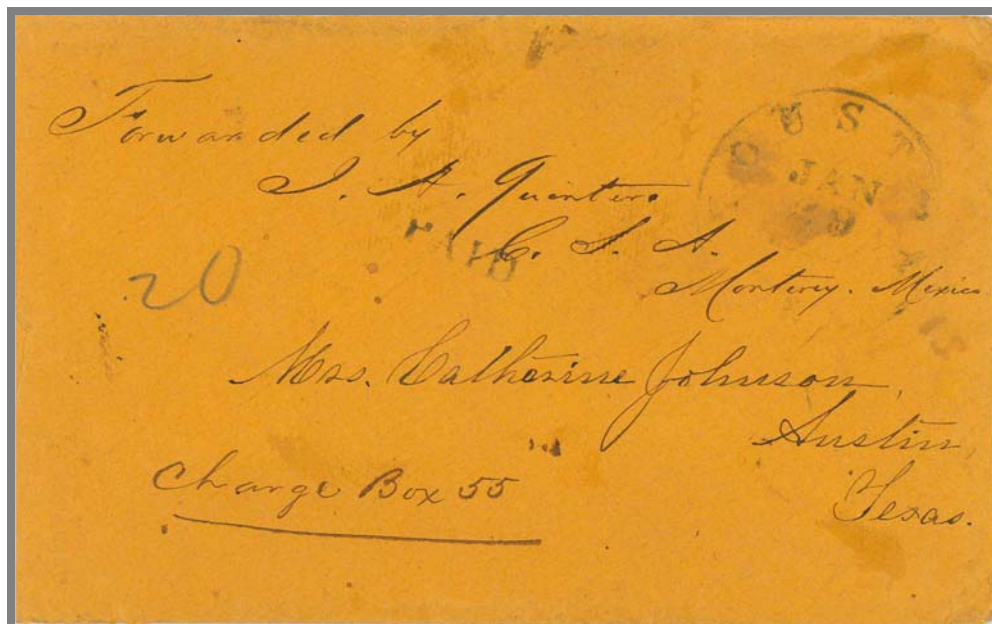 Forwarded by
J. A. Quintero
C. S. A.
Monterey. Mexico
PAID
20
JAN
Mrs. Catherine Johnson,
Austin,
Texas.
Charge Box 55